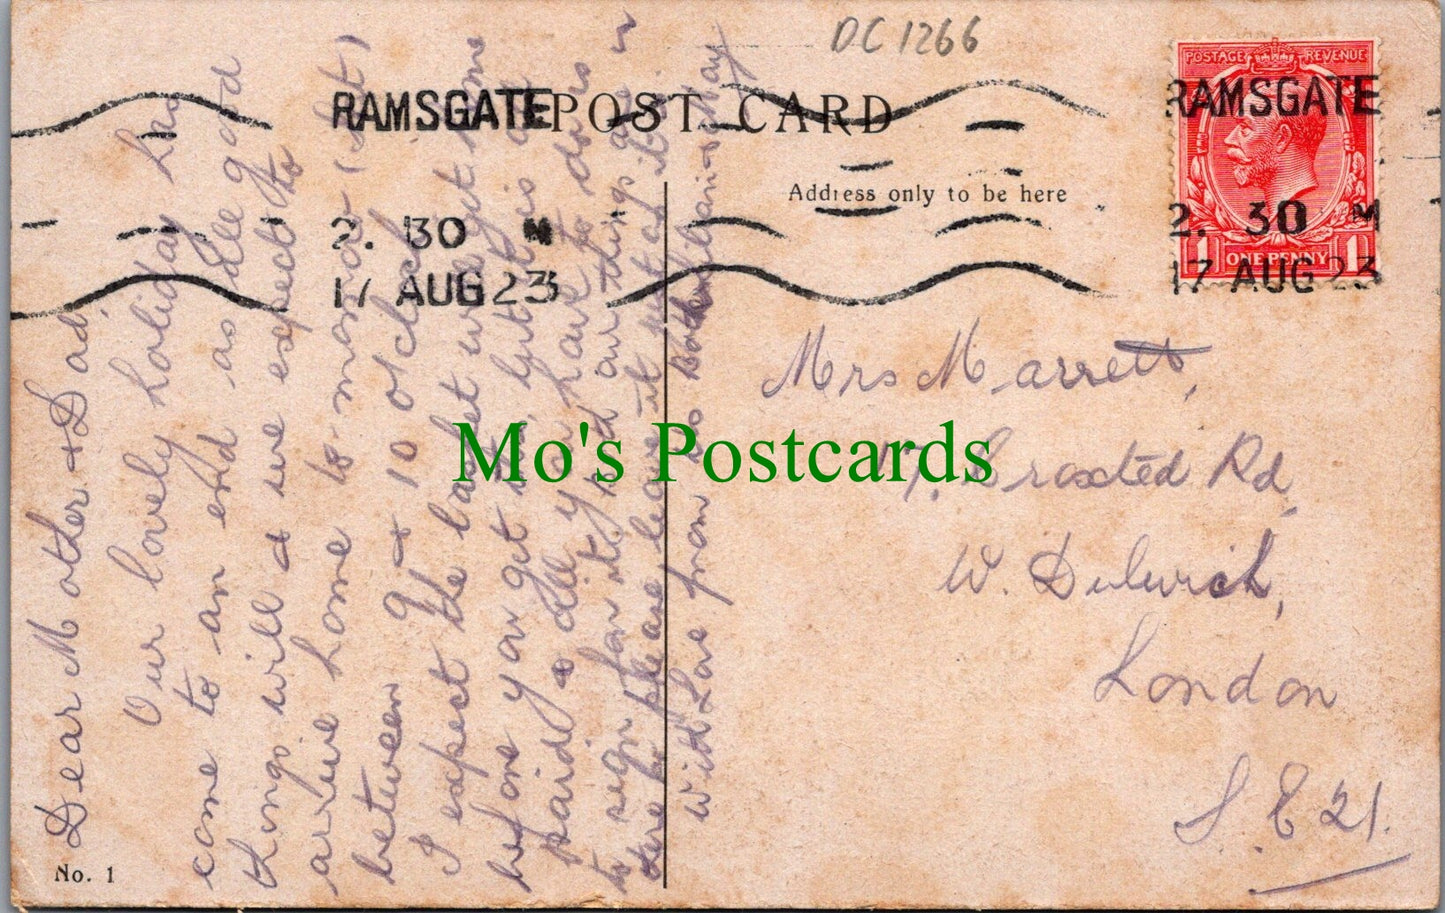 DC 1266
POST CARD
RAMSGATE
2. 30 M
17 AUG 23
POSTAGE REVENUE
RAMSGATE
2. 30 M
17 AUG 23
1 ONE PENNY 1
Address only to be here
Dear Mother & Dad,
Our lovely holiday has
come to an end as all good
things will & we expect to
arrive home to-morrow (Sat)
between 9 & 10 o'clock
I expect the basket will get home
before you get this, but it is all
paid & all you have to do is
to sign for it,
our things are in
there so please leave it
With Love from
Mrs Marrett,
17. Croxted Rd,
W. Dulwich,
London
S.E 21.
Mo's Postcards
No. 1